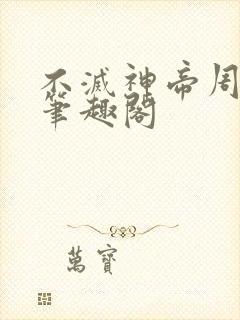 不滅神帝周
筆趣閣
萬寶